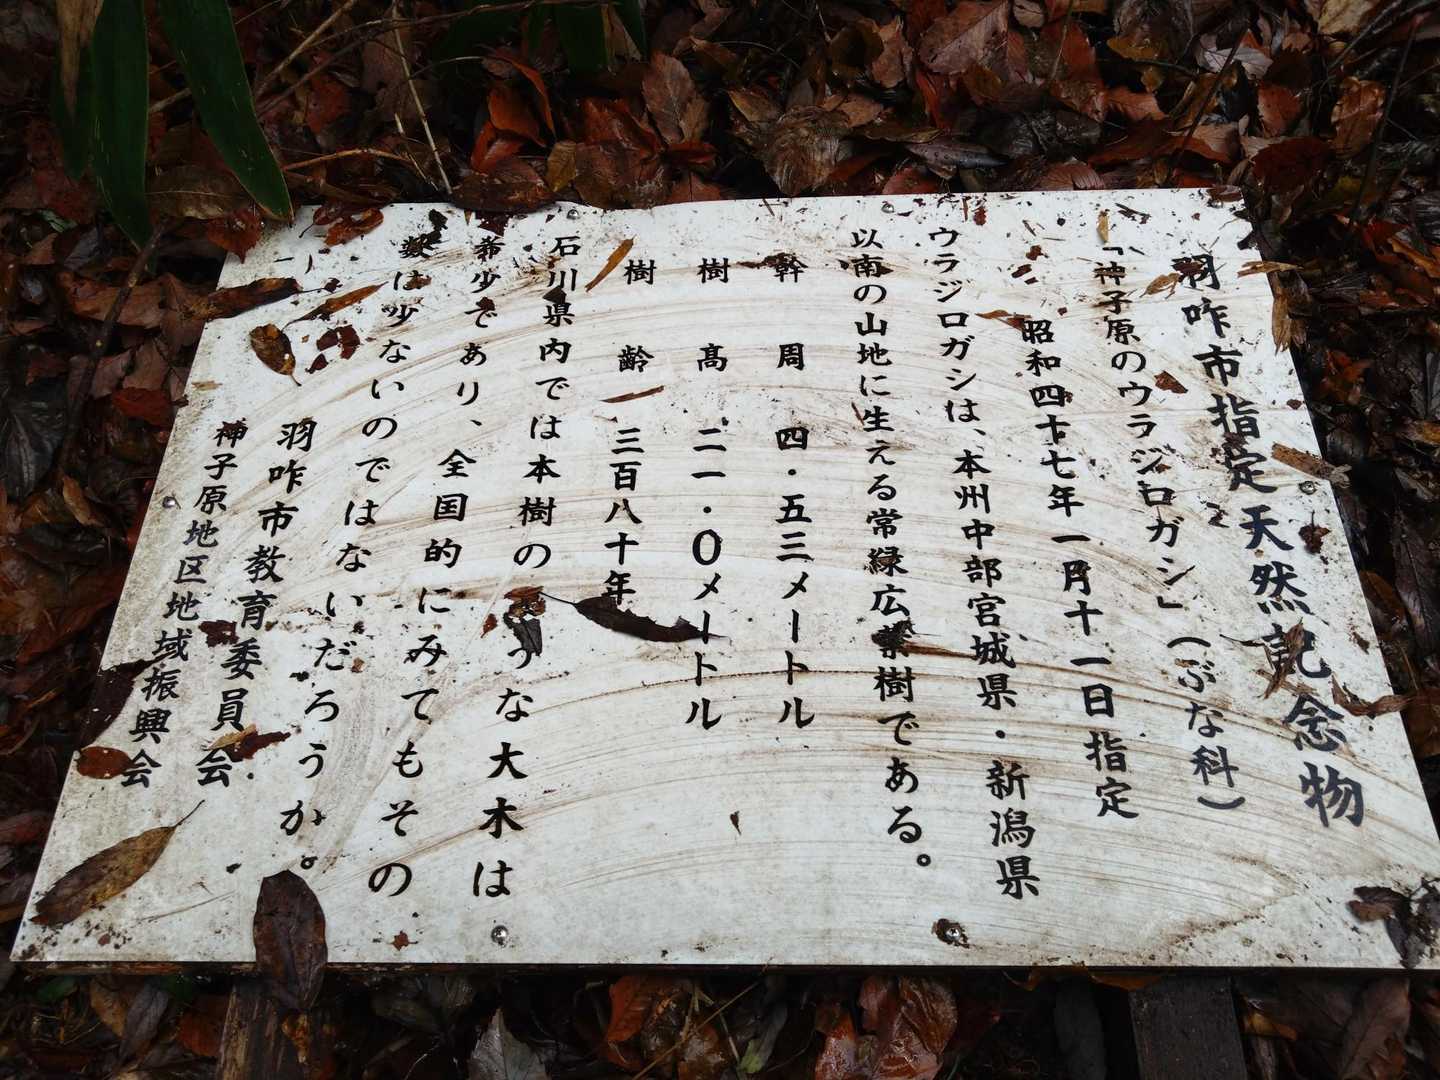 羽咋市指定天然記念物
「神子原のウラジロガシ」（ぶな科）
昭和四十七年一月十一日指定
ウラジロガシは、本州中部宮城県・新潟県
以南の山地に生える常緑広葉樹である。
幹周 四・五三メートル
樹高 二一・〇メートル
樹齢 三百八十年
石川県内では本樹のような大木は
希少であり、全国的にみてもその
数は少ないのではないだろうか。
羽咋市教育委員会
神子原地区地域振興会